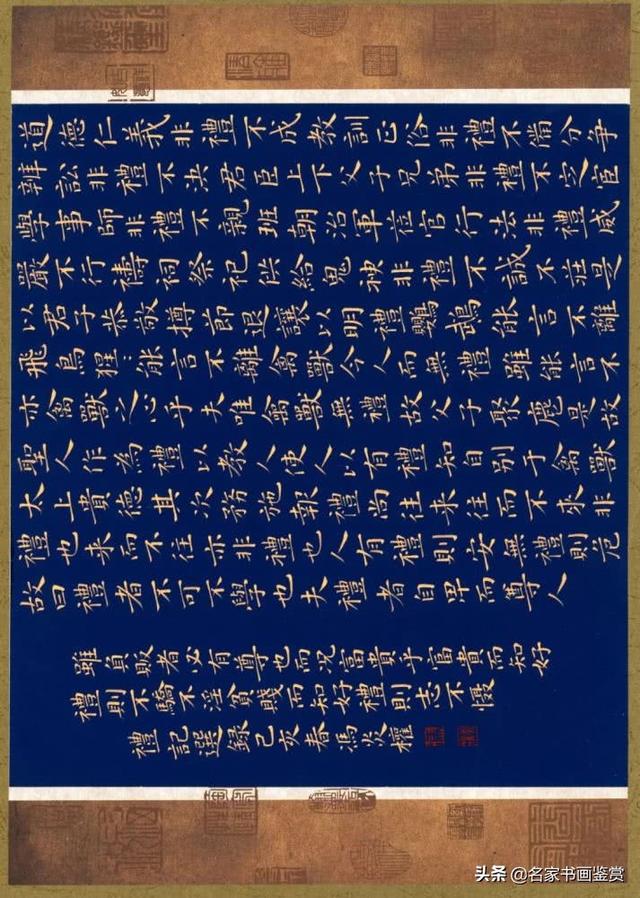 道德仁義非禮不成教訓正俗非禮不備分爭
辨訟非禮不決君臣上下父子兄弟非禮不定宦
學事師非禮不親班朝治軍位官行法非禮威
嚴不行禱祠祭祀供給鬼神非禮不誠不莊是
以君子恭敬撙節退讓以明禮鸚鵡能言不離
飛鳥猩:能言不離禽獸今人而無禮雖能言不
亦禽獸之心乎夫唯禽獸無禮故父子聚麀是故
聖人作為禮以教人使人以有禮知自別于禽獸
太上貴德其次務施報禮尚往来往而不來非
禮也来而不往亦非禮也人有禮則安無禮則危
故曰禮者不可不學也夫禮者自卑而尊人
雖負販者必有尊也而況富貴乎富貴而知好
禮則不驕不淫貧賤而知好禮則志不懾
禮記選錄己亥春馮炎櫂
头条 @名家书画鉴赏